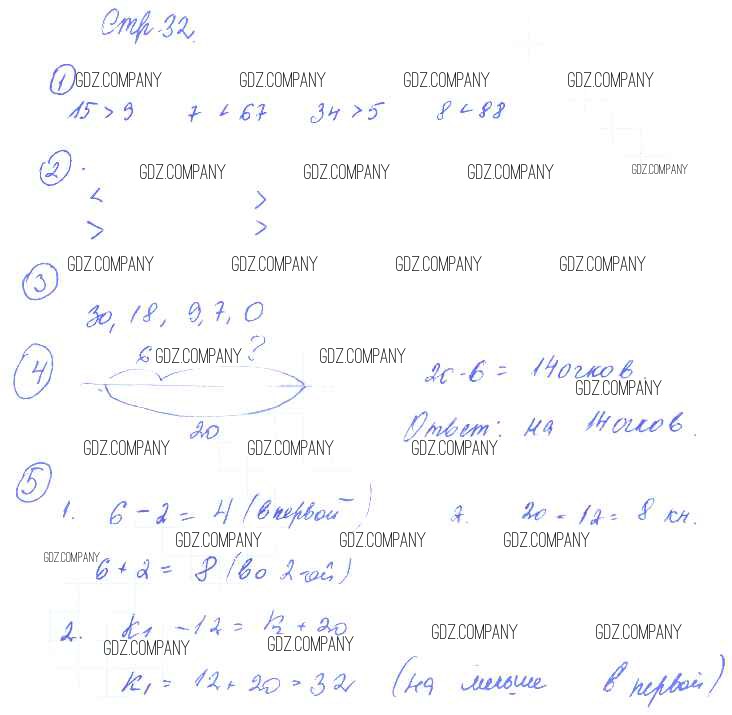 Стр. 32.
1 GDZ.COMPANY GDZ.COMPANY GDZ.COMPANY GDZ.COMPANY
15 > 9 7 < 67 34 > 5 8 < 88
2 GDZ.COMPANY GDZ.COMPANY GDZ.COMPANY GDZ.COMPANY
< >
> >
GDZ.COMPANY GDZ.COMPANY GDZ.COMPANY GDZ.COMPANY
3
30, 18, 9, 7, 0
4 6 GDZ.COMPANY ? GDZ.COMPANY
20 - 6 = 14 очков
GDZ.COMPANY
20 Ответ: на 14 очков.
GDZ.COMPANY GDZ.COMPANY GDZ.COMPANY
5
1. 6 - 2 = 4 (в первой) 20 - 12 = 8 кн.
GDZ.COMPANY GDZ.COMPANY GDZ.COMPANY
GDZ.COMPANY
6 + 2 = 8 (во 2-ой)
2. К1 - 12 = + 20
GDZ.COMPANY GDZ.COMPANY GDZ.COMPANY GDZ.COMPANY
К1 = 12 + 20 = 32 (на меньше в первой)